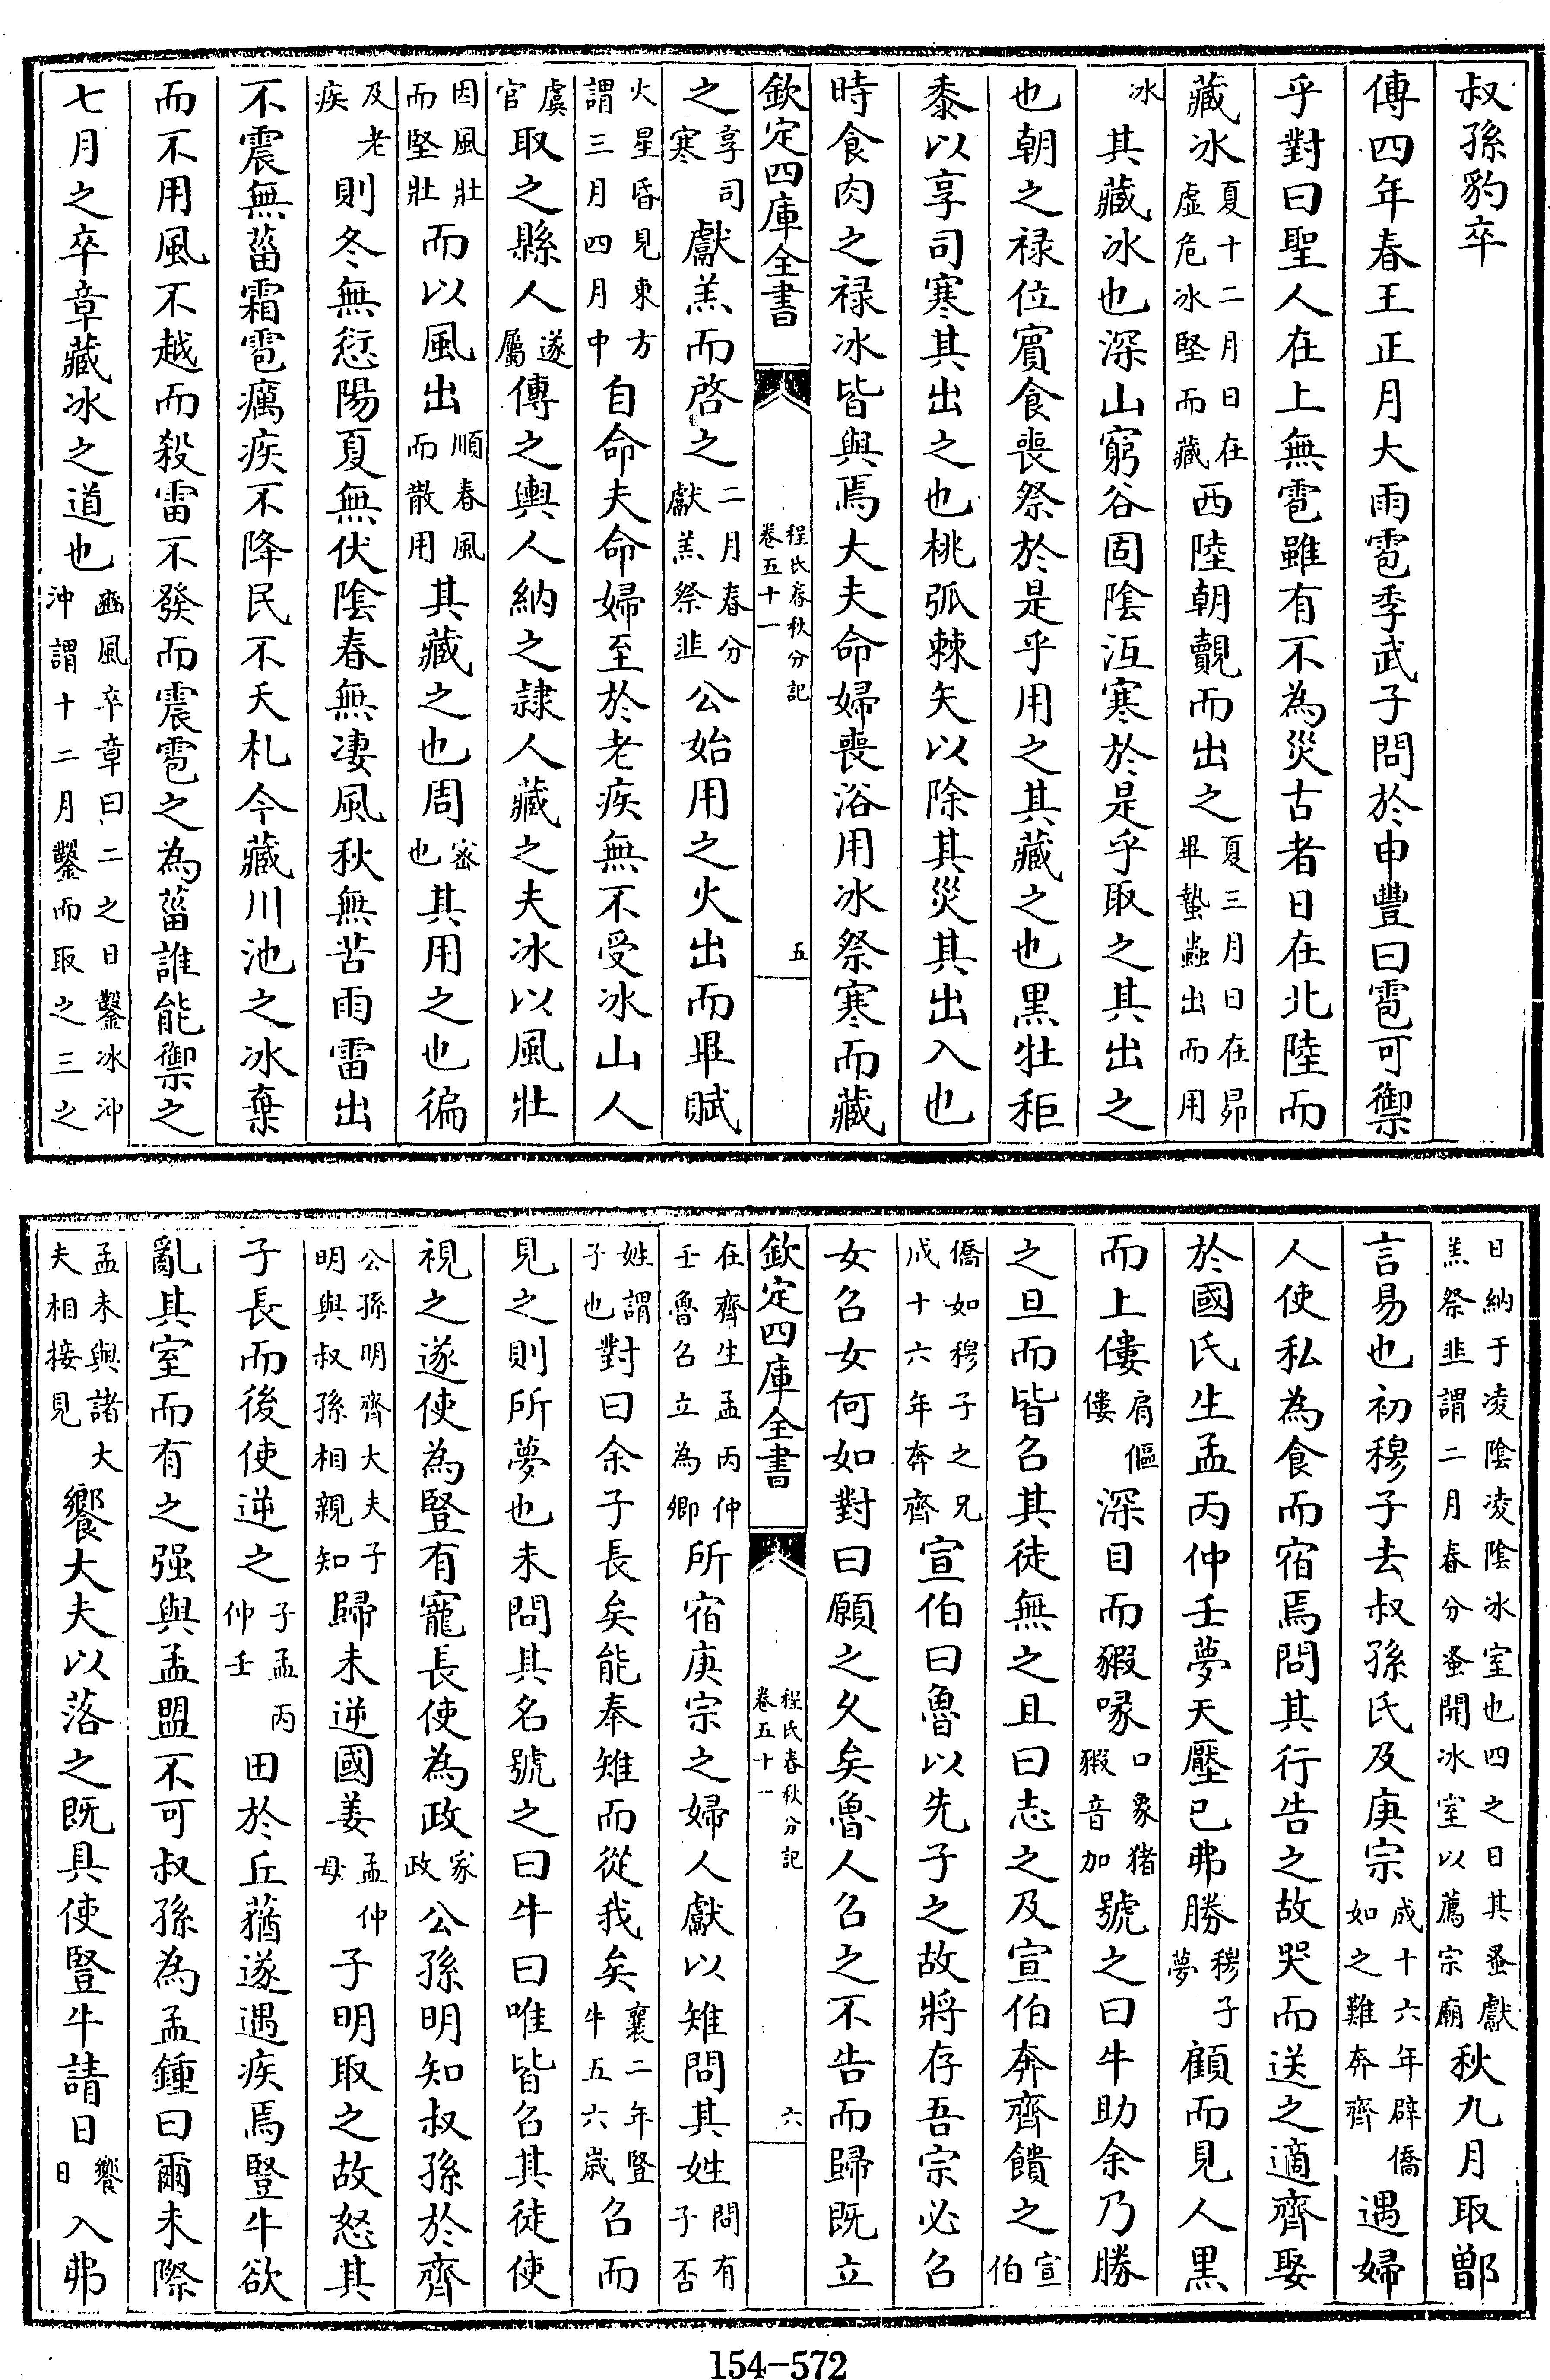 叔孫豹卒
傳四年春王正月大雨雹季武子問於申豐曰雹可禦
乎對曰聖人在上無雹雖有不為災古者日在北陸而
藏冰夏十二月日在虛危冰堅而藏西陸朝覿而出之夏三月日在昴畢蟄蟲出而用
冰其藏冰也深山窮谷固陰沍寒於是乎取之其出之
也朝之禄位賔食喪祭於是乎用之其藏之也黒牡秬
黍以享司寒其出之也桃弧棘矢以除其災其出入也
時食肉之禄冰皆與焉大夫命婦喪浴用冰祭寒而藏
欽定四庫全書 程氏春秋分記卷五十一 五
之享司寒獻羔而啓之二月春分獻羔祭韭公始用之火出而畢賦
火星昏見東方謂三月四月中自命夫命婦至於老疾無不受冰山人
虞官取之縣人遂屬傳之輿人納之隸人藏之夫冰以風壯
因風壯而堅壯而以風出順春風而散用其藏之也周密也其用之也徧
及老疾則冬無愆陽夏無伏陰春無凄風秋無苦雨雷出
不震無菑霜雹癘疾不降民不夭札今藏川池之冰棄
而不用風不越而殺雷不發而震雹之為菑誰能禦之
七月之卒章藏冰之道也豳風卒章曰二之日鑿冰沖沖謂十二月鑿而取之三之
日納于凌陰凌陰冰室也四之日其蚤獻羔祭韭謂二月春分蚤開冰室以薦宗廟秋九月取鄫
言易也初穆子去叔孫氏及庚宗成十六年辟僑如之難奔齊遇婦
人使私為食而宿焉問其行告之故哭而送之適齊娶
於國氏生孟丙仲壬夢天壓已弗勝穆子夢顧而見人黒
而上僂肩傴僂深目而豭喙口象猪豭音加號之曰牛助余乃勝
之旦而皆召其徒無之且曰志之及宣伯奔齊饋之宣伯
僑如穆子之兄成十六年奔齊宣伯曰魯以先子之故將存吾宗必召
女召女何如對曰願之久矣魯人召之不告而歸既立
欽定四庫全書 程氏春秋分記卷五十一 六
在齊生孟丙仲壬魯召立為卿所宿庚宗之婦人獻以雉問其姓問有子否
姓謂子也對曰余子長矣能奉雉而從我矣襄二年豎牛五六歲召而
見之則所夢也未問其名號之曰牛曰唯皆召其徒使
視之遂使為豎有寵長使為政家政公孫明知叔孫於齊
公孫明齊大夫子明與叔孫相親知歸未逆國姜孟仲母子明取之故怒其
子長而後使逆之子孟丙仲壬田於丘蕕遂遇疾焉豎牛欲
亂其室而有之强與孟盟不可叔孫為孟鍾曰爾未際
孟未與諸大夫相接見饗大夫以落之既具使豎牛請日饗日入弗
154-572